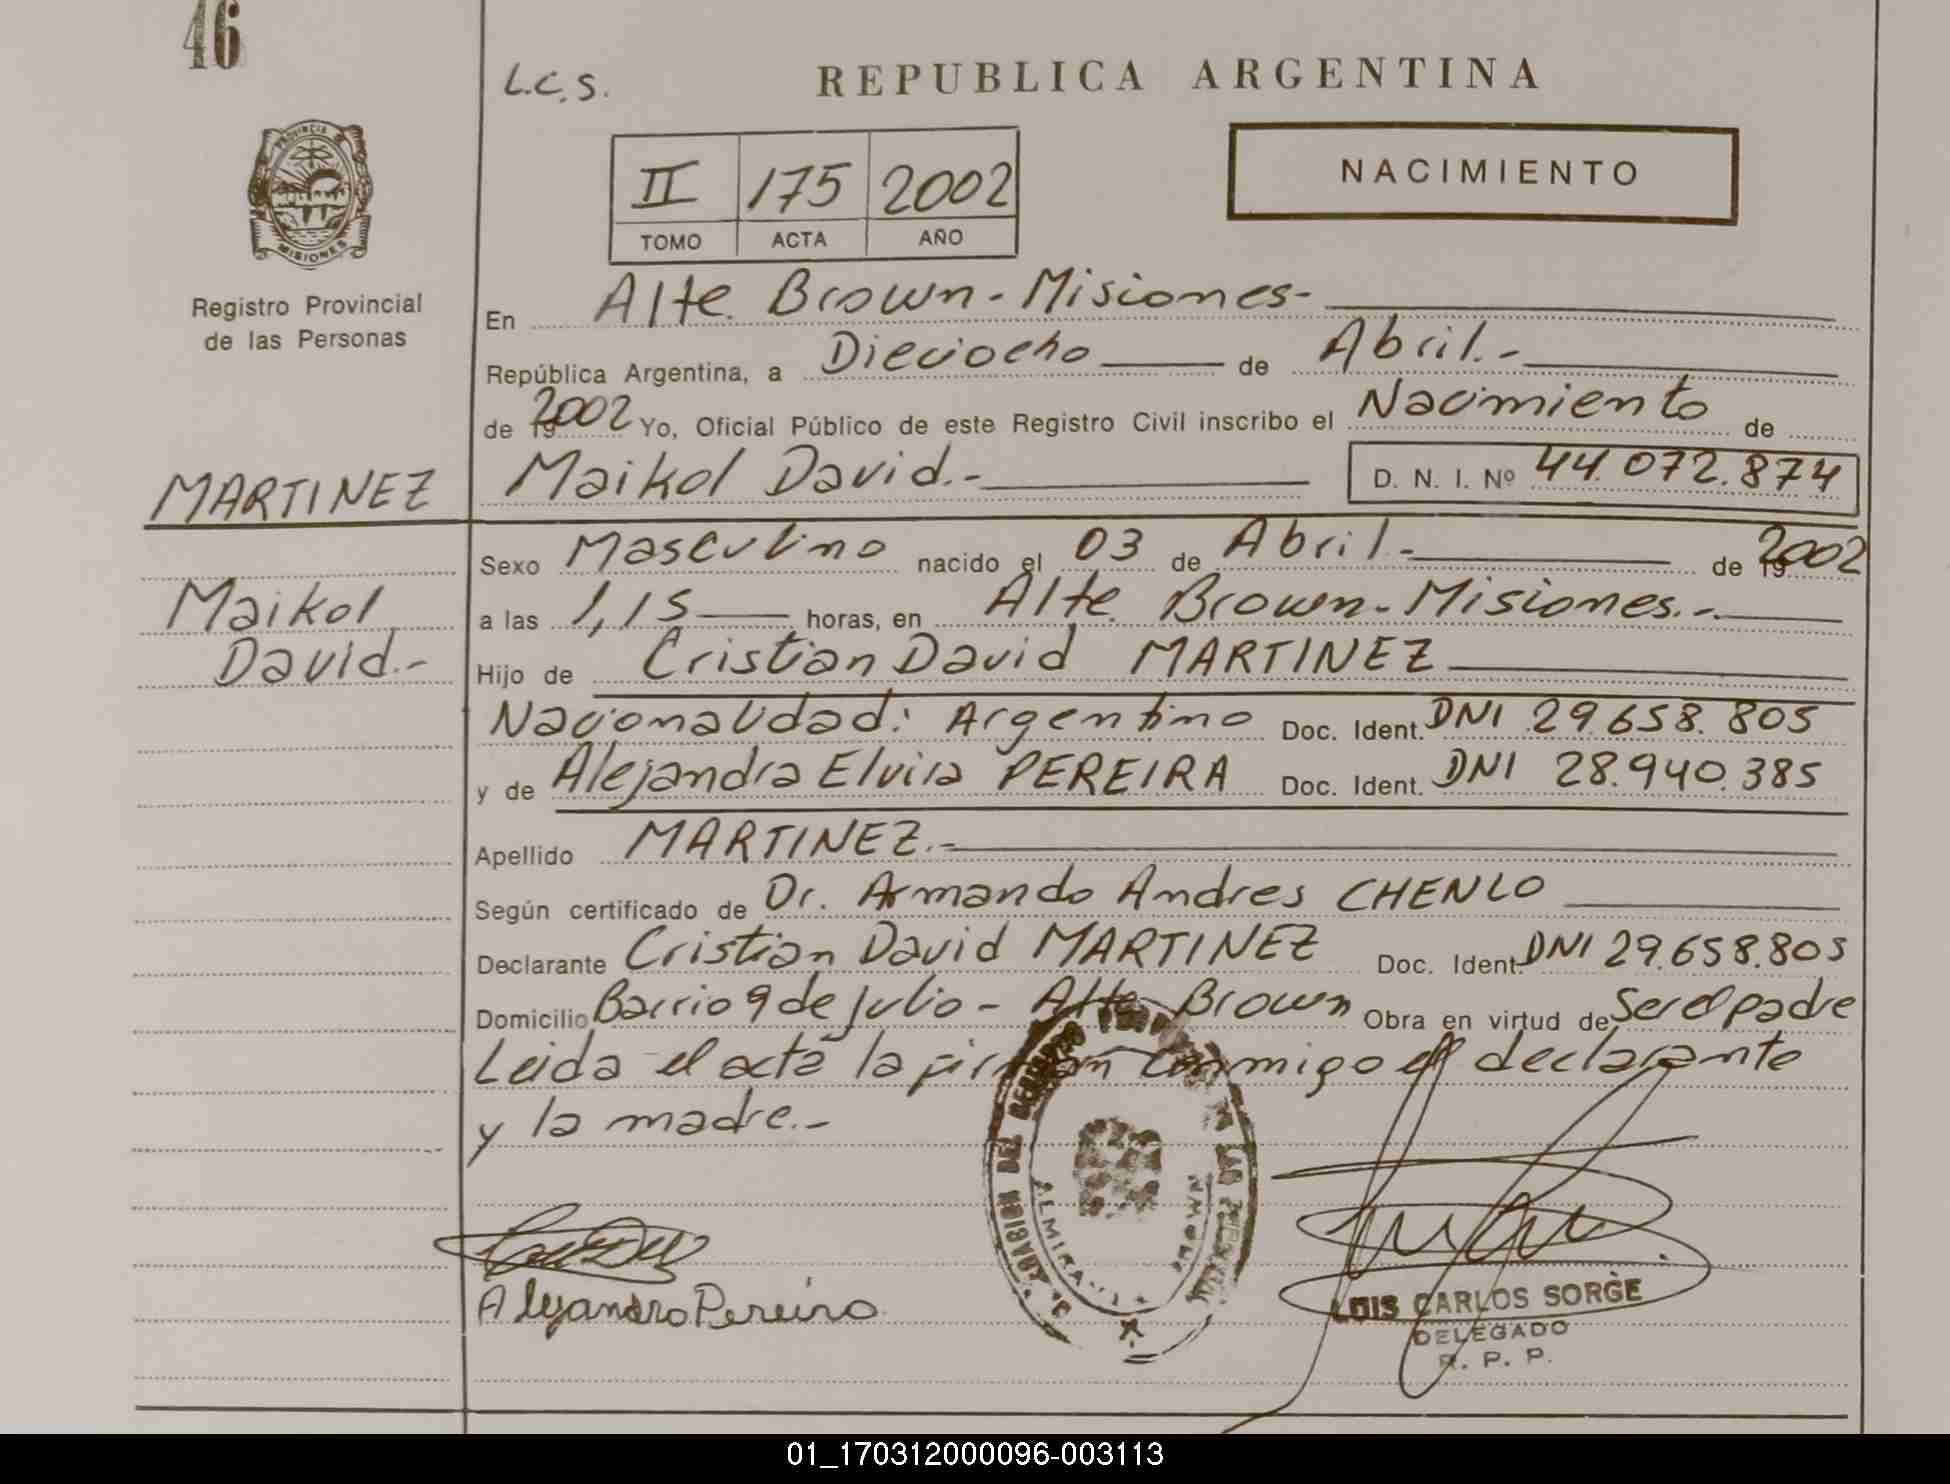 46
L.C.S.
REPUBLICA ARGENTINA
PROVINCIA
MISIONES
Registro Provincial
de las Personas
II 175 2002
TOMO ACTA AÑO
NACIMIENTO
En Alte. Brown - Misiones -
República Argentina, a Dieciocho de Abril.-
de 2002 Yo, Oficial Público de este Registro Civil inscribo el Nacimiento de
MARTINEZ Maikol David.- D. N. I. Nº 44.072.874
Sexo Masculino nacido el 03 de Abril.- de 2002
Maikol a las 1,15 horas, en Alte. Brown - Misiones.-
David.- Hijo de Cristian David MARTINEZ
Nacionalidad: Argentino Doc. Ident. DNI 29.658.805
y de Alejandra Elvira PEREIRA Doc. Ident. DNI 28.940.385
Apellido MARTINEZ.-
Según certificado de Dr. Armando Andres CHENLO
Declarante Cristian David MARTINEZ Doc. Ident. DNI 29.658.805
Domicilio Barrio 9 de julio - Alte. Brown Obra en virtud de Ser el padre
Leida el acta la firman conmigo el declarante
y la madre.-
Alejandra Pereira
LUIS CARLOS SORGE
DELEGADO
R. P. P.
01_170312000096-003113